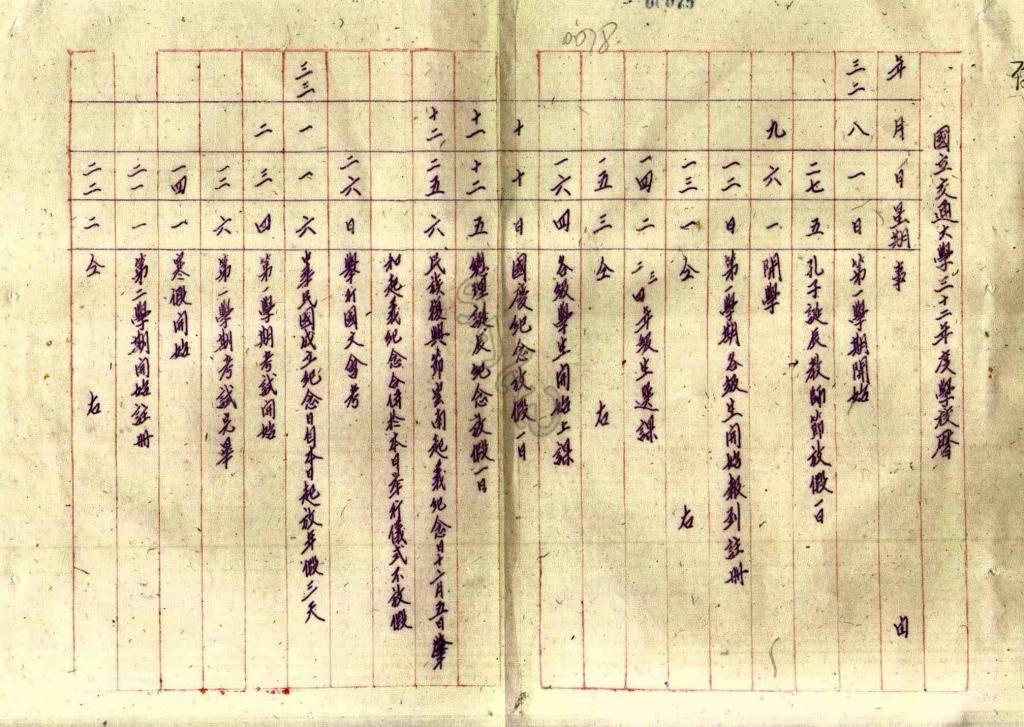 國立交通大學三十二年度學校曆
年 月 日 星期 事 由
三二 八 一 日 第一學期開始
二七 五 孔子誕辰教師節放假一日
九 六 一 開學
一二 日 第一學期各級生開始報到註冊
一三 一 仝 右
一四 二 二三四年級生選課
一五 三 仝 右
一六 四 各級學生開始上課
十 十 日 國慶紀念放假一日
十一 十二 五 總理誕辰紀念放假一日
十二 二五 六 民族復興節雲南起義紀念日十二月五日肇
和起義紀念合併於本日舉行儀式不放假
二六 日 舉行國文會考
三三 一 一 六 中華民國成立紀念日自本日起放年假三天
二 三 四 第一學期考試開始
一二 六 第一學期考試完畢
一四 一 寒假開始
二一 一 第二學期開始註冊
二二 二 仝 右
0078